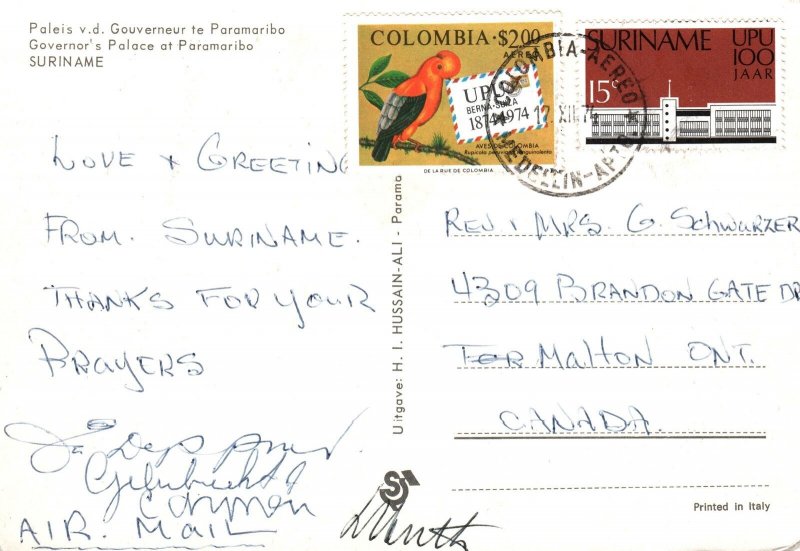 Paleis v.d. Gouverneur te Paramaribo
Governor's Palace at Paramaribo
SURINAME
COLOMBIA · $2.00
AEREO
UPU
BERNA-SUIZA
1874-1974
AVES DE COLOMBIA
DE LA RUE DE COLOMBIA
SURINAME
UPU
100
JAAR
15c
COLOMBIA-AEREO
17 XII 74
MEDELLIN-APTO
LOVE + GREETING
FROM. SURINAME.
THANKS FOR YOUR
PRAYERS
AIR. MAIL
Uitgave: H. I. HUSSAIN-ALI - Parama
REV. & MRS. G. SCHWARZER
4309 BRANDON GATE DR
MALTON ONT.
CANADA.
Printed in Italy